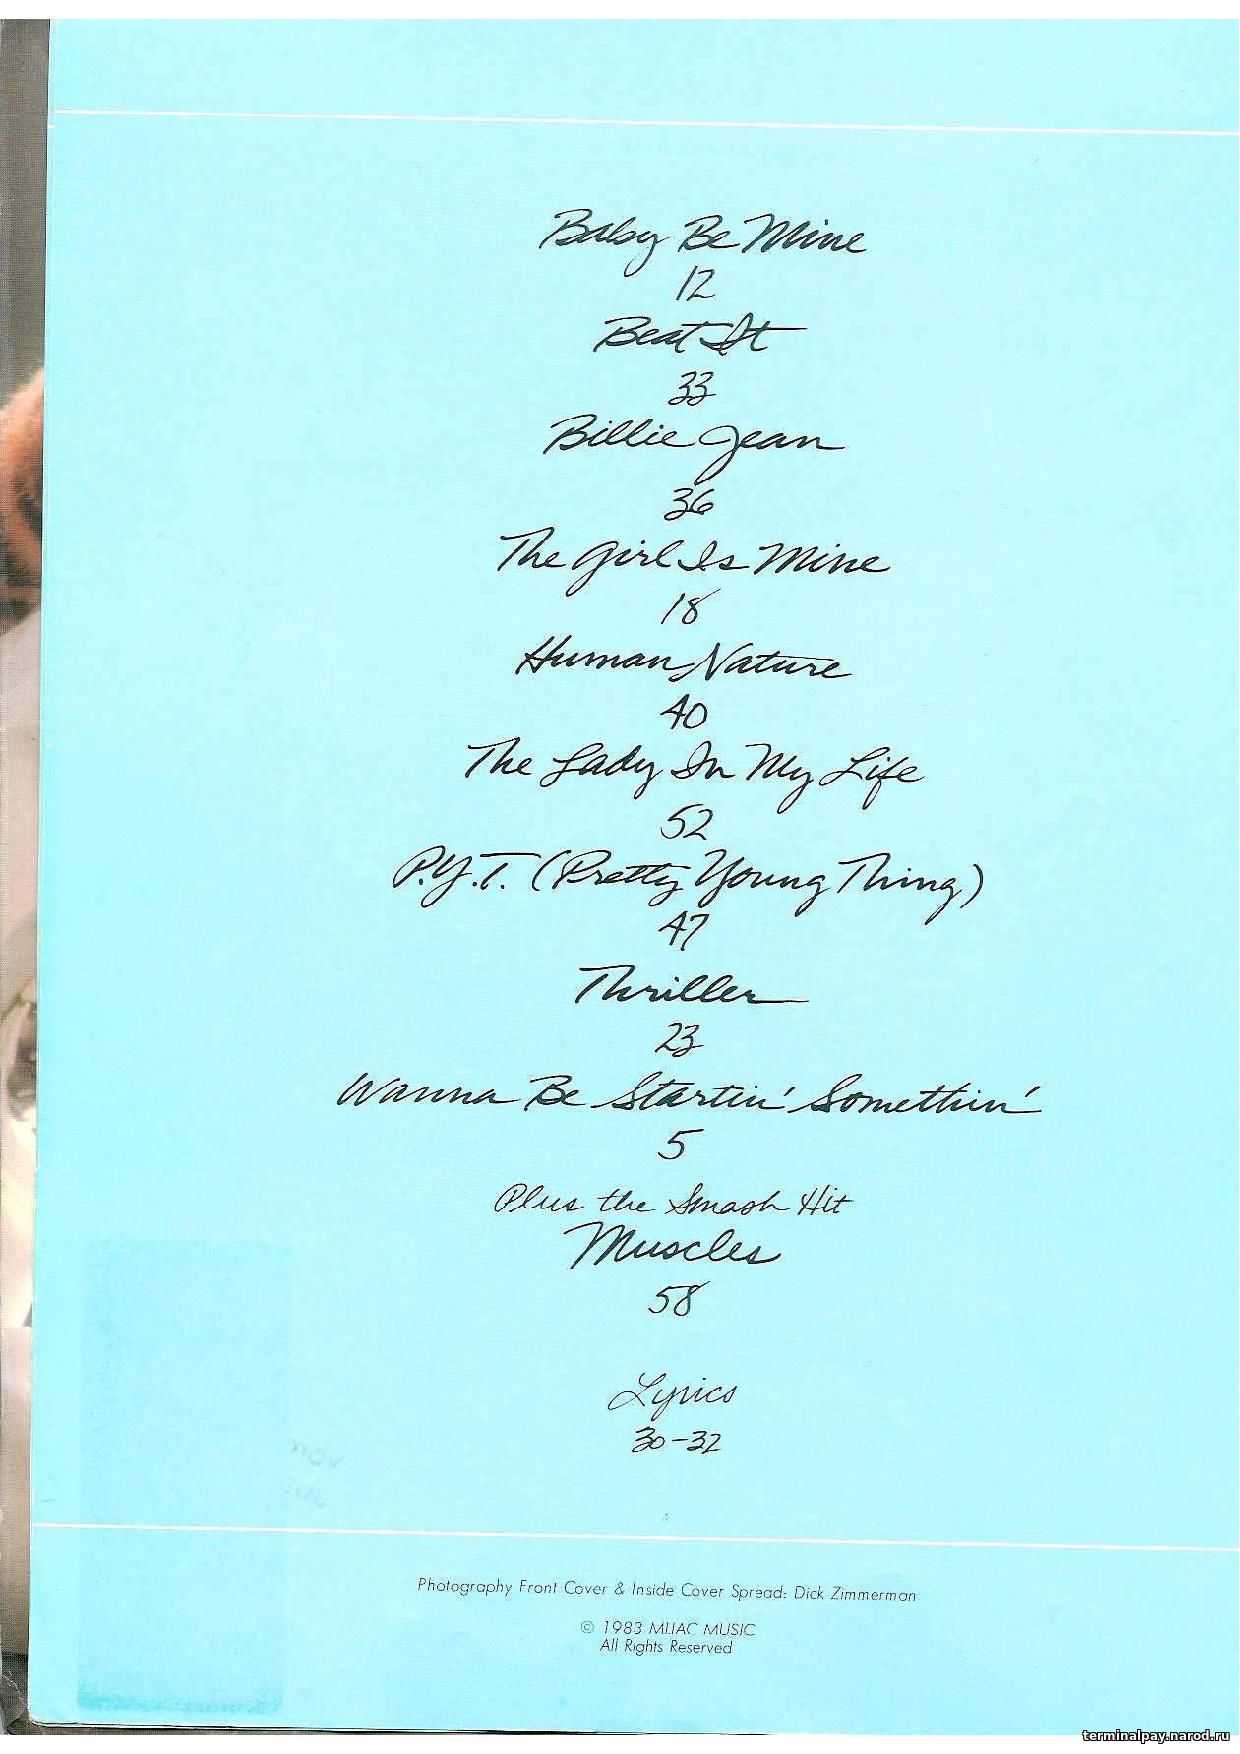 Baby Be Mine
12
Beat It
33
Billie Jean
36
The Girl Is Mine
18
Human Nature
40
The Lady In My Life
52
P.Y.T. (Pretty Young Thing)
47
Thriller
23
Wanna Be Startin' Somethin'
5
Plus the Smash Hit
Muscles
58
Lyrics
30-32
Photography Front Cover & Inside Cover Spread: Dick Zimmerman
© 1983 MIJAC MUSIC
All Rights Reserved
terminalpay.narod.ru